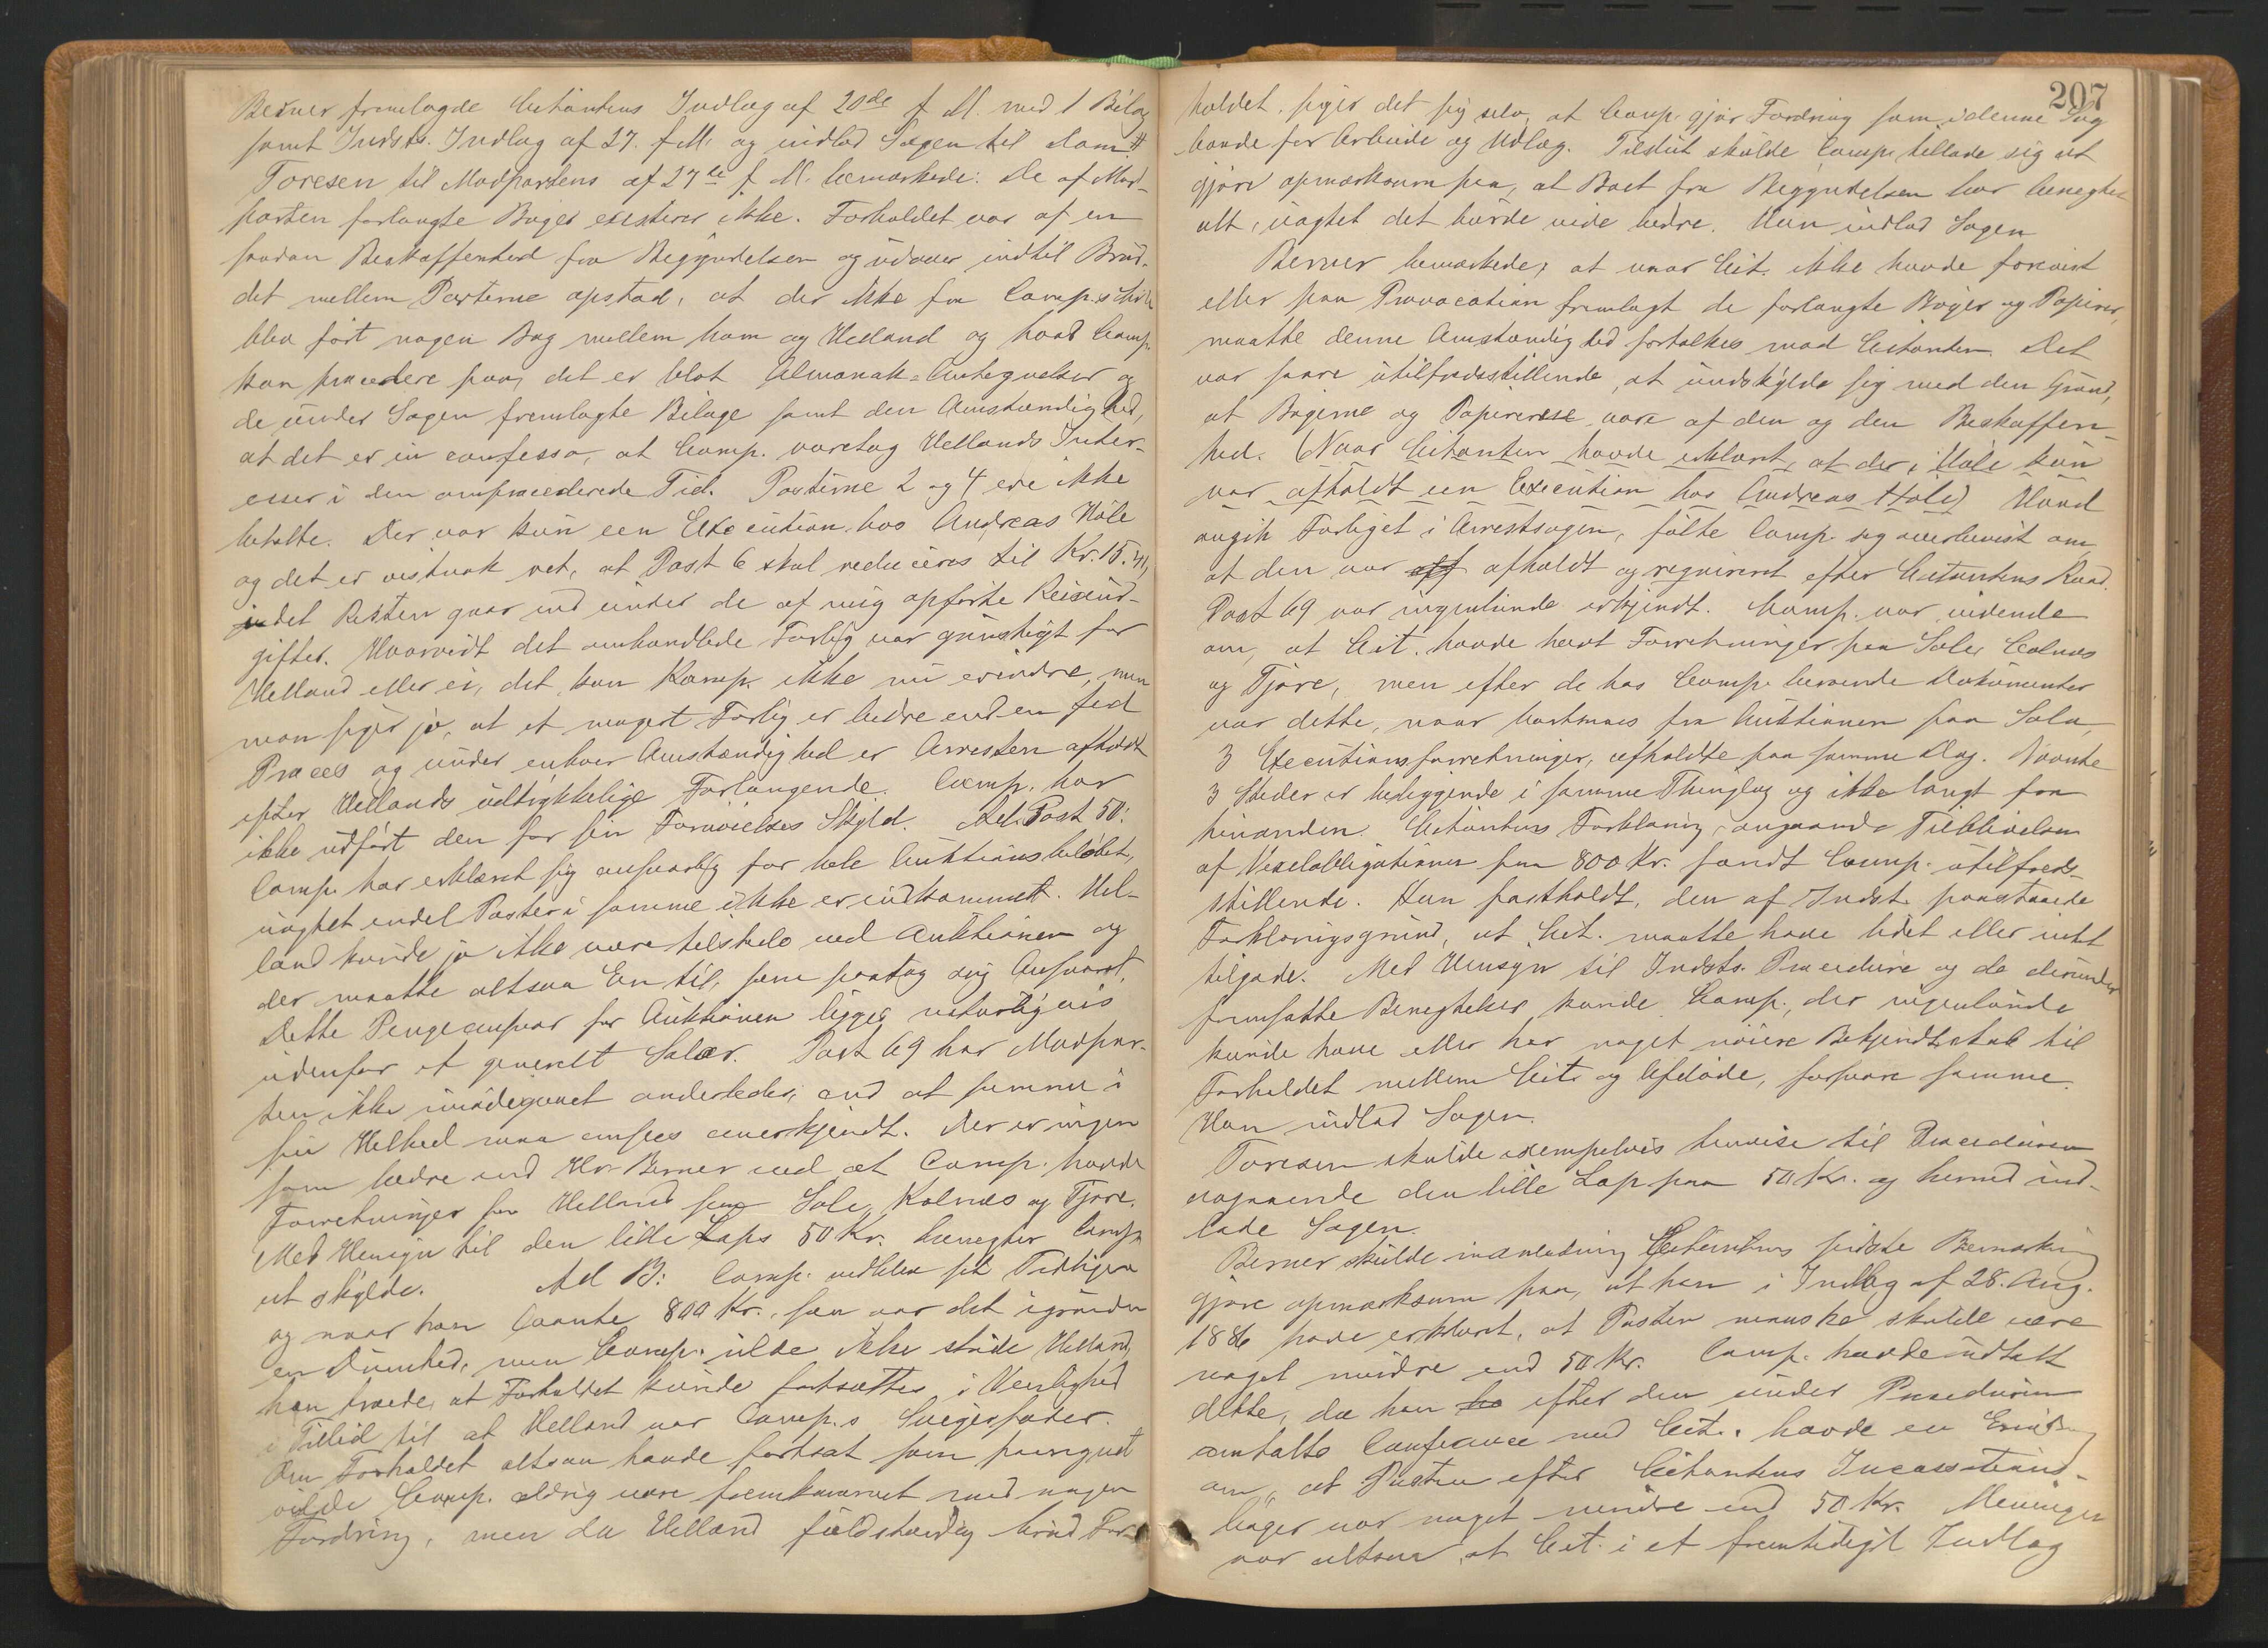 Berner fremlagde Citantens Indlæg af 20de f. M. med 1 Bilag
samt Indsts. Indlæg af 27. f. M. og indlod Sagen til Dom.#
Toresen til Modpartens af 27de f. M. bemærkede: De af Mod-
parten forlangte Bøger existerer ikke. Forholdet var af en
saadan Beskaffenhed fra Begyndelsen og udover indtil Brud-
det mellem Parterne opstod, at der ikke fra Comp.s Side
blev ført nogen Bog mellem ham og Helland og hvad Comp.
kan procedere paa, det er blot Almanak-Antegnelser og
de under Sagen fremlagte Bilage samt den Omstændighed,
at det er in confesso, at Comp. varetog Hellands Inter-
esser i den omprocederede Tid. Posterne 2 og 4 ere ikke
betalte. Der var kun een Execution hos Andreas Høle
og det er vistnok ret, at Post 6 skal reduceres til Kr. 15.41,
idet Resten gaar ind under de af mig opførte Reiseud-
gifter. Hvorvidt det omhandlede Forlig var gunstigt for
Helland eller ei, det kan Komp. ikke nu erindre, men
man siger jo, at et magert Forlig er bedre end en fed
Proces og under enhver Omstændighed er Arresten afholdt
efter Hellands udtrykkelige Forlangende. Comp. har
ikke udført den for sin Fornøielses Skyld. Ad Post 50:
Comp. har erklæret sig ansvarlig for hele Auktionsbeløbet,
uagtet endel Poster i samme ikke er indkommet. Hel-
land kunde jo ikke være tilstede ved Auktionen og
der maatte altsaa En til, som paatog sig Ansvaret.
Dette Pengeansvar for Auktionen ligger naturligvis
udenfor et generelt Salær. Post 69 har Modpar-
ten ikke imødegaaet anderledes, end at samme i
sin Helhed maa ansees anerkjendt. Der er ingen
som bedre end Hr. Berner ved at Comp. havde
Forretninger for Helland paa Sole, Kolnæs og Tjøre.
Med Hensyn til den lille Laps 50 Kr. benegter Comp.
at skylde. Ad B: Comp. vedblev sit Tidligere
og naar han laante 800 Kr., saa var det igrunden
en Dumhed, men Comp. vilde ikke støde Helland,
han troede, at Forholdet kunde fortsættes i Venlighed
i Tillid til at Helland var Comp.s Svigerfader.
Om Forholdet altsaa havde fortsat som paaregnet
vilde Comp. aldrig være fremkommet med nogen
Fordring, men da Helland fuldstændig brød For-
207
holdet, siger det sig selv, at Comp. gjør Fordring som i denne Sag
baade for Arbeide og Udlæg. Tilslut skulde Comp. tillade sig at
gjøre opmærksom paa, at Boet fra Begyndelsen har benegtet
alt, uagtet det burde vide bedre. Han indlod Sagen
Berner bemærkede, at naar Cit. ikke havde forevist
eller paa Provocation fremlagt de forlangte Bøger og Papirer,
maatte denne Omstændighed fortolkes mod Citanten. Det
var saare utilfredsstillende, at undskylde sig med den Grund,
at Bøgerne og Papirerne vare af den og den Beskaffen-
hed. (Naar Citanten havde erklæret, at der i Høle kun
var afholdt een Execution hos Andreas Høle) Hvad
angik Forliget i Arrestsagen, følte Comp. sig overbevist om,
at den var aff afholdt og requireret efter Citantens Raad.
Post 69 var ingenlunde erkjendt. Comp. var vidende
om, at Cit. havde havt Forretninger paa Sole, Colnæs
og Tjøre, men efter de hos Comp. beroende Dokumenter
var dette, naar bortsaaes fra Auktionen paa Sola,
3 Executionsforretninger, afholdte paa samme Dag. Nævnte
3 Steder er beliggende i samme Thinglag og ikke langt fra
hinanden. Citantens Forklaring angaaende Tilblivelsen
af Vexelobligationen paa 800 Kr. fandt Comp. utilfreds-
stillende. Han fastholdt, den af Indst. paastaaede
Forklaringsgrund, at Cit. maatte have lidet eller intet
tilgode. Med Hensyn til Indsts. Procedure og de derunder
fremsatte Benegtelser kunde Comp., der ingenlunde
kunde have eller har noget nøiere Bekjendtskab til
Forholdet mellem Cit. og Afdøde, forsvare samme.
Han indlod Sagen.
Toresen skulde exempelvis henvise til Proceduren
angaaende den lille Lap paa 50 Kr. og hermed ind-
lade Sagen.
Berner skulde i Anledning Citantens sidste Bemærkning
gjøre opmærksom paa, at han i Indlæg af 28. Aug.
1886 havde erklæret, at Posten maaske skulde være
noget mindre end 50 Kr. Comp. havde udtalt
dette, da han ha efter den under Proceduren
omtalte Conference med Cit. havde en Erindring
om, at Posten efter Citantens Incassations-
bøger var noget mindre end 50 Kr. Meningen
var altsaa, at Cit. i et fremtidigt Indlæg